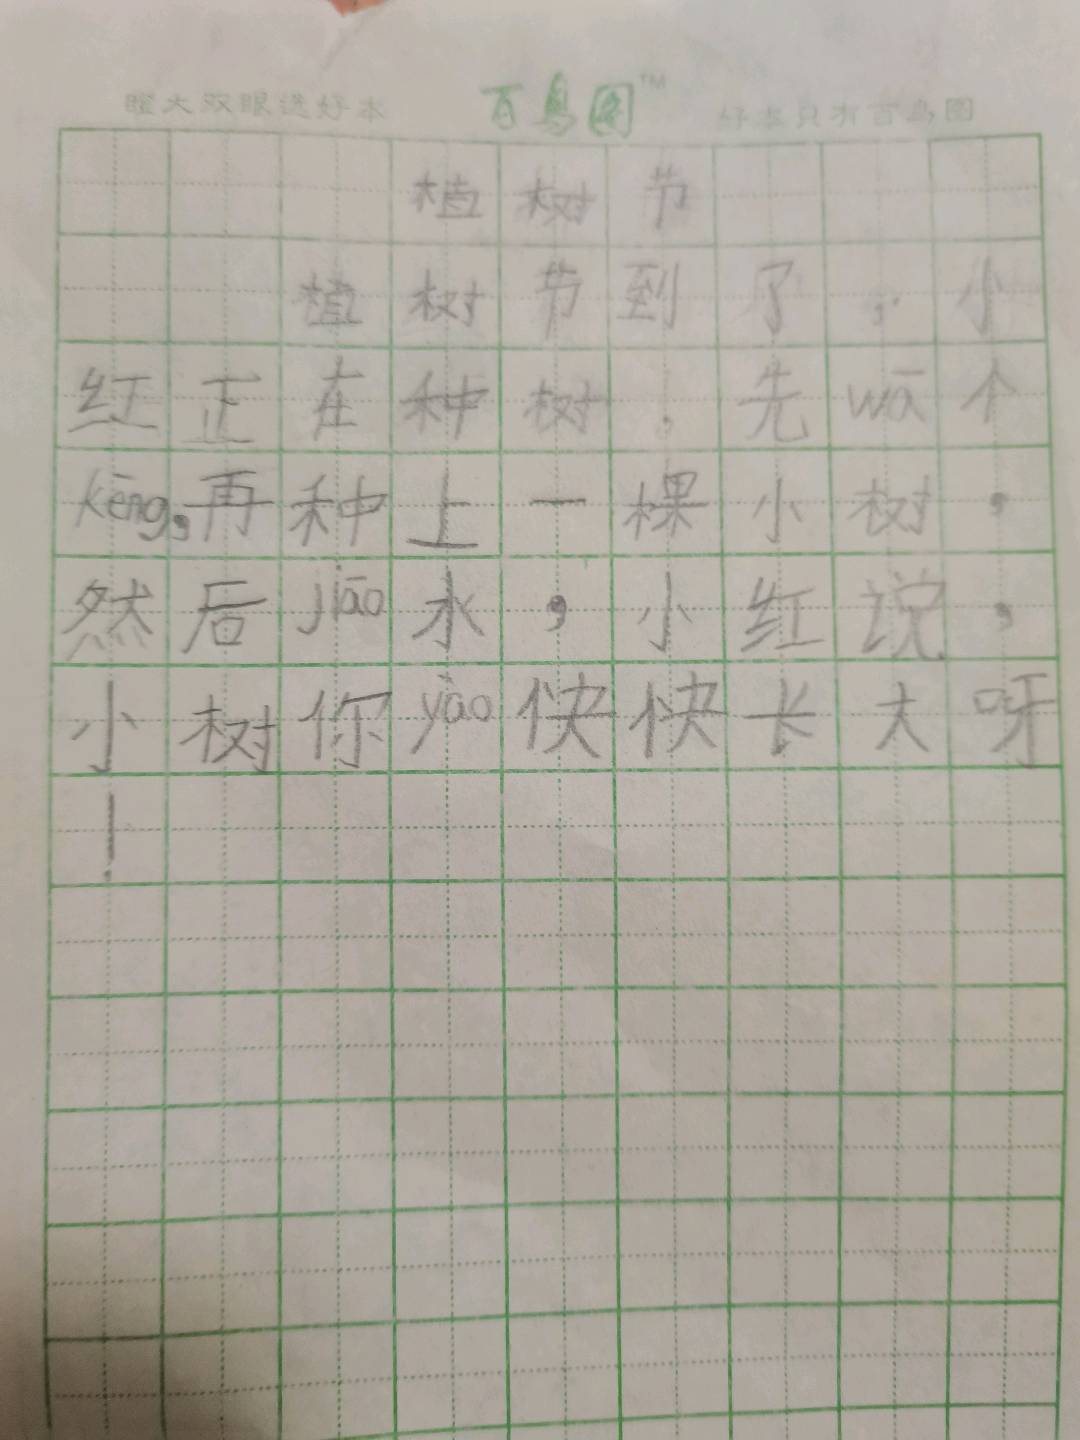 瞪大双眼选好本 百鸟图™ 好本只有百鸟图
植树节
植树节到了，小
红正在种树，先wā个
kēng，再种上一棵小树，
然后jiāo水，小红说，
小树你yào快快长大呀
！